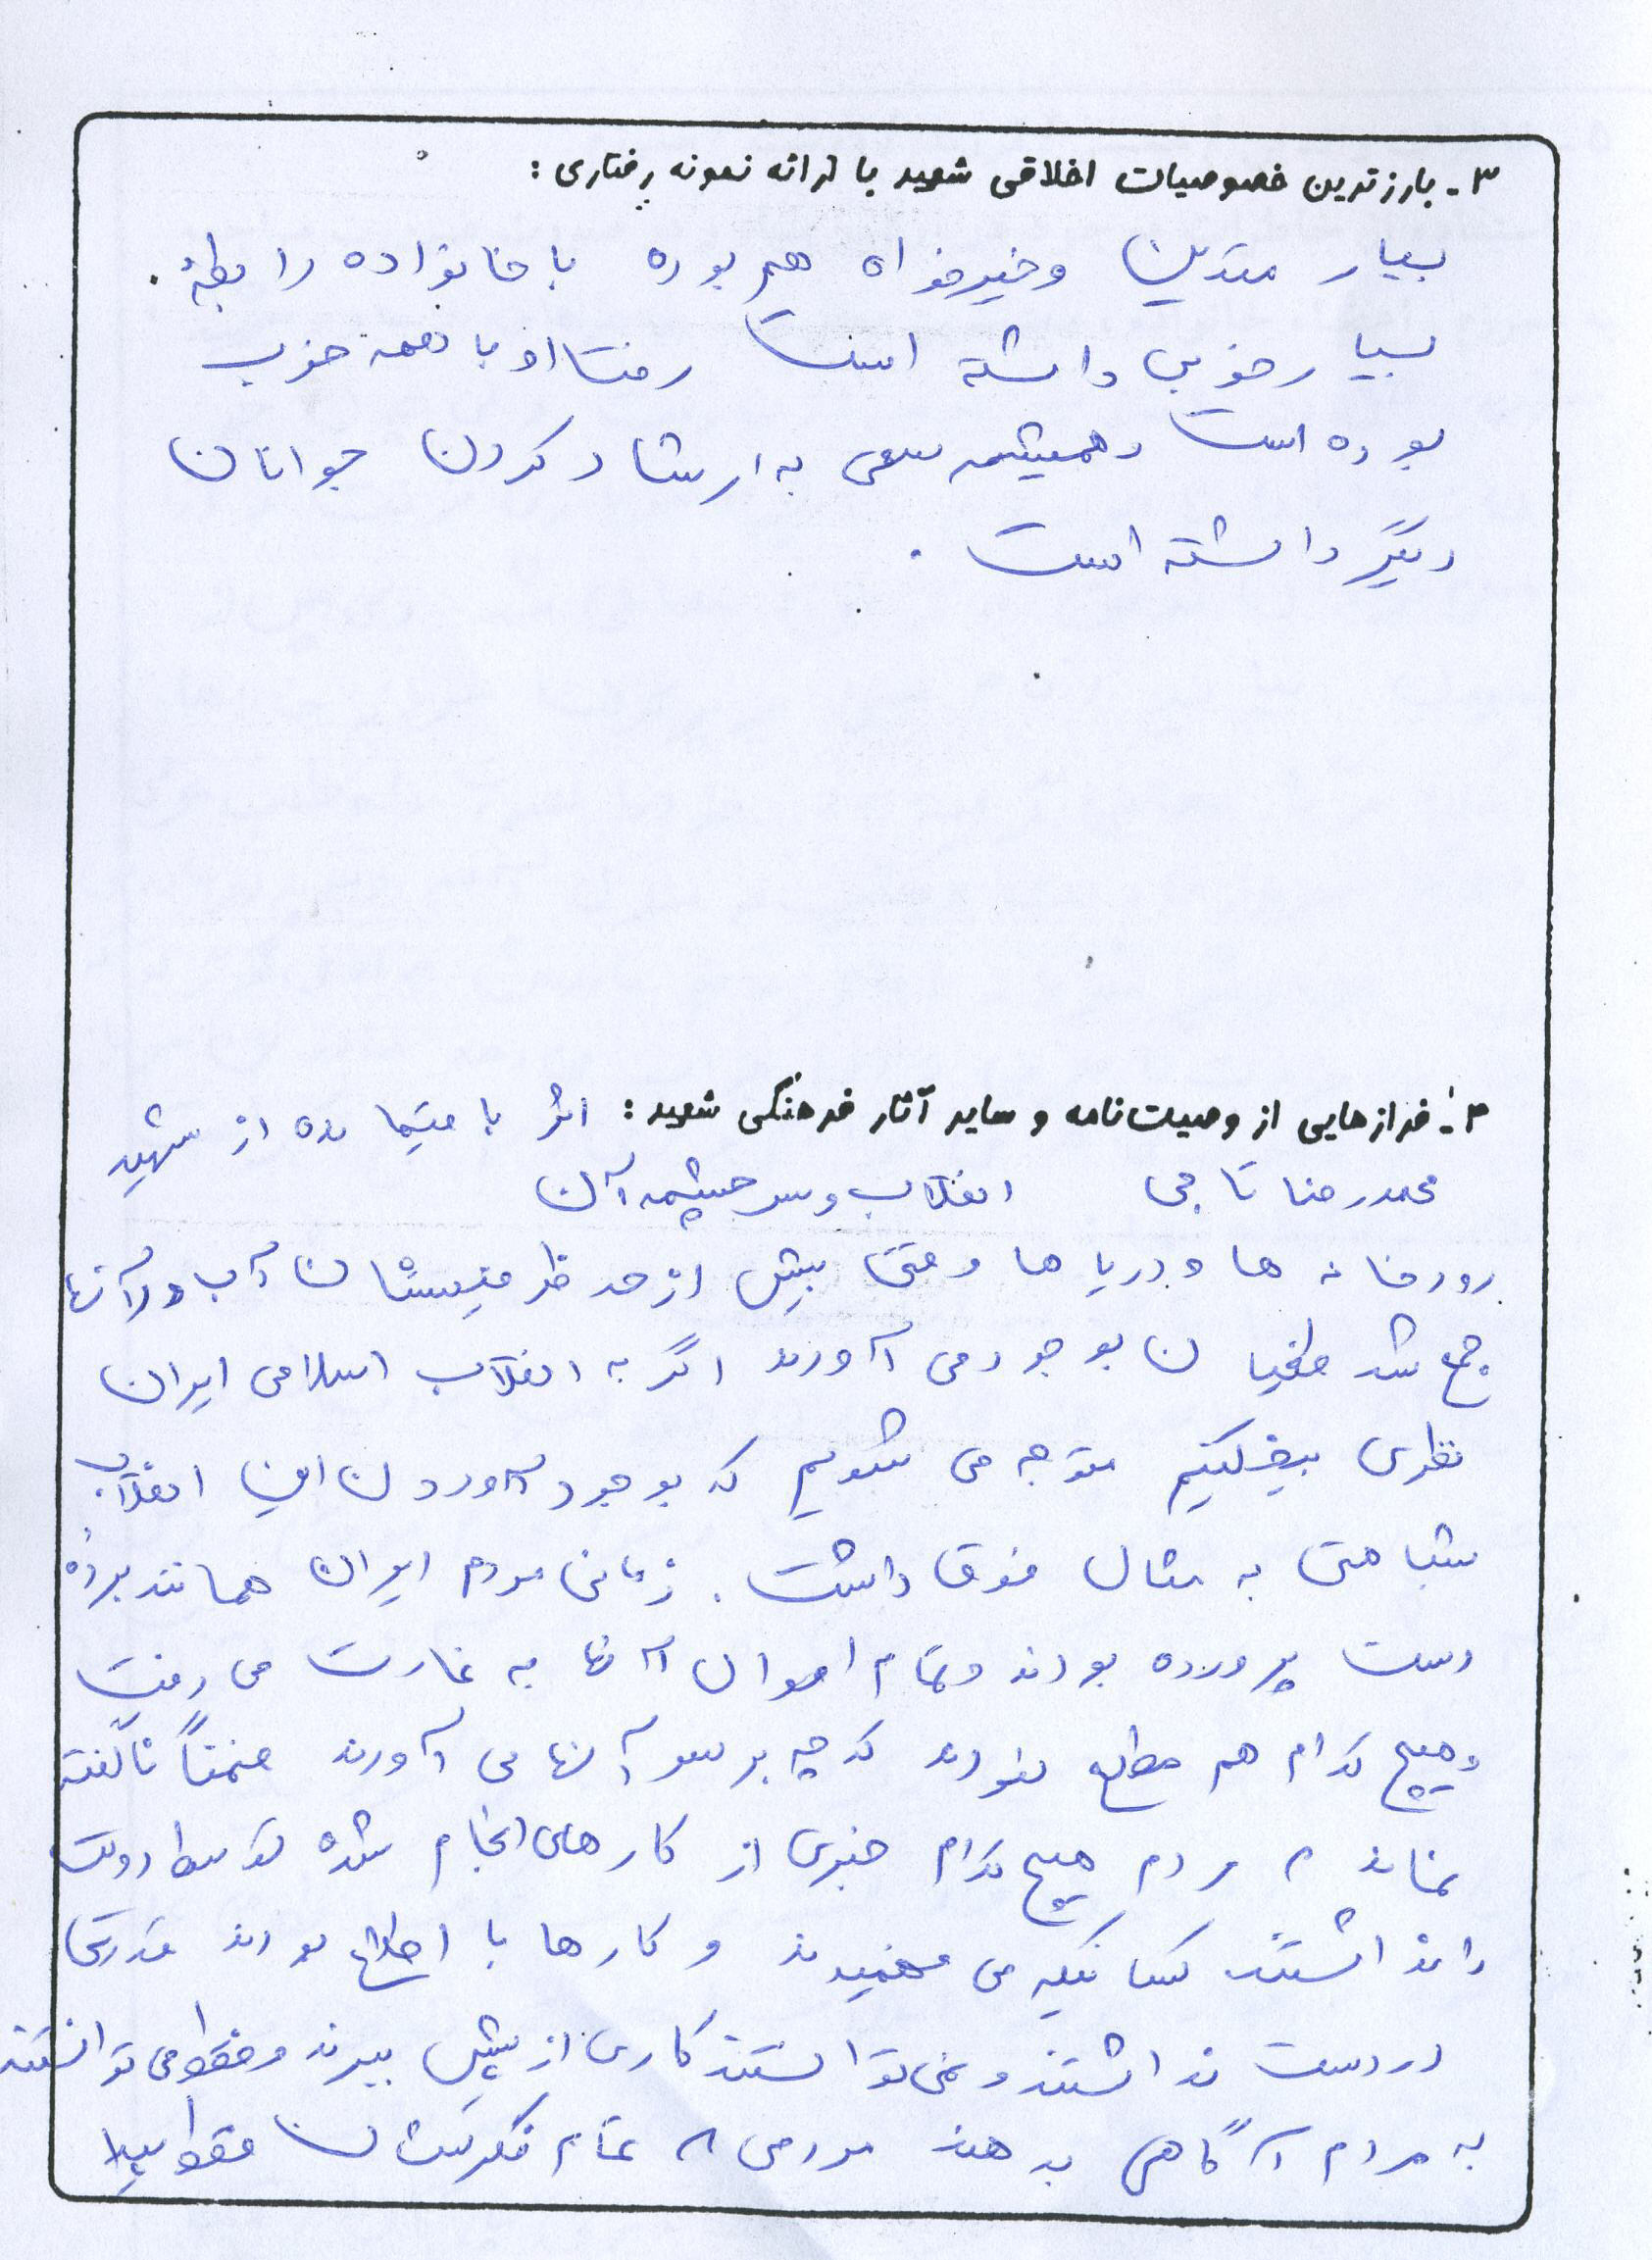 ۳- بارزترین خصوصیات اخلاقی شهید با ارائه نمونه رفتاری:
بسیار متدین و خیرخواه هم بوده با خانواده رابطهٔ
بسیار خوبی داشته است رفتار او با همه خوب
بوده است و همیشه سعی به ارشاد کردن جوانان
دیگر داشته است .
۴- فرازهایی از وصیت‌نامه و سایر آثار فرهنگی شهید: اثر باقیمانده از شهید
محمدرضا تاجی انقلاب و سرچشمه آن
رودخانه ها و دریا ها وقتی بیش از حد ظرفیتشان آب در آنها
جمع شد طغیان بوجود می آورند اگر به انقلاب اسلامی ایران
نظری بیفکنیم متوجه می شویم که بوجود آوردن این انقلاب
شباهتی به مثال فوق داشت . زمانی مردم ایران همانند برده
دست پرورده بودند و تمام اموال آنها به غارت می رفت
و هیچ کدام هم مطلع نبودند که چه بر سر آنها می آورند ضمناً ناگفته
نماند مردم هیچ کدام خبری از کارهای انجام شده توسط دولت
را نداشتند کسانیکه می فهمیدند و کارها با اطلاع بودند قدرتی
در دست نداشتند و نمی توانستند کاری از پیش ببرند و فقط می توانستند
به مردم آگاهی بدهند مردمی که تمام فکرشان فقط